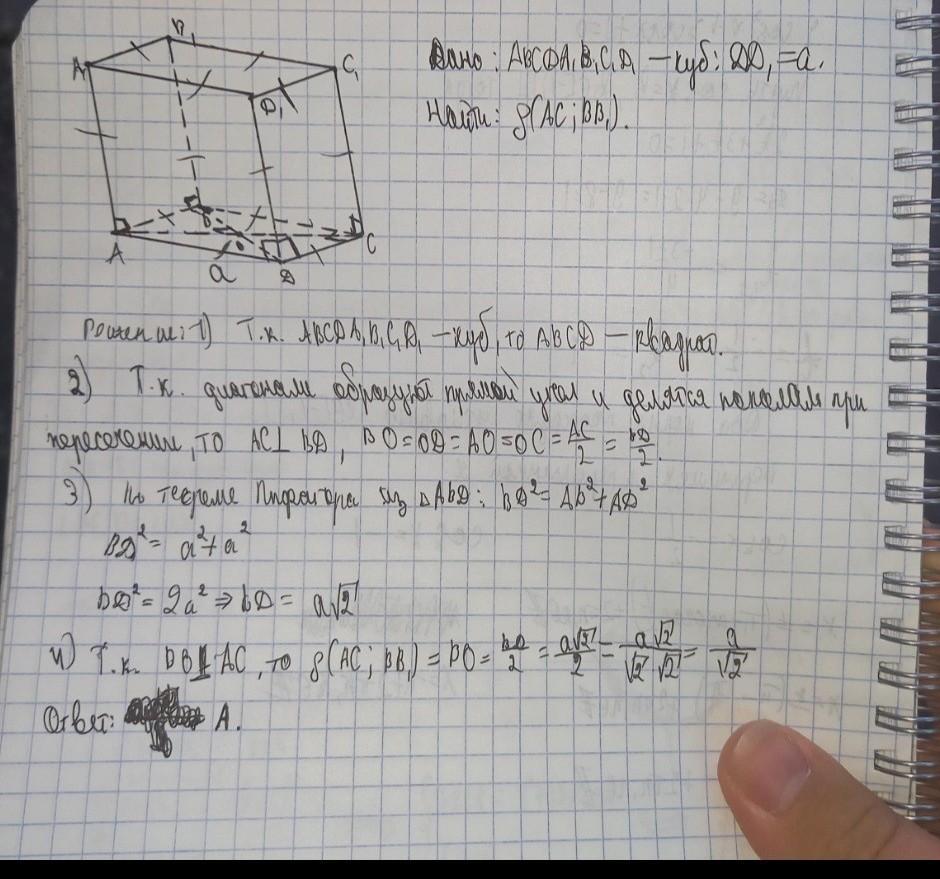 B₁
A₁
C₁
D₁
Дано: ABCDA₁B₁C₁D₁ — куб; DD₁ = a.
Найти: ρ(AC; BB₁).
A
B
O
C
a
D
Решение: 1) Т.к. ABCDA₁B₁C₁D₁ — куб, то ABCD — квадрат.
2) Т.к. диагонали образуют прямой угол и делятся пополам при
пересечении, то AC⊥BD, BO=OD=AO=OC=AC/2=BD/2.
3) По теореме Пифагора из △ABD: BD²=AB²+AD²
BD²= a²+a²
BD²= 2a² ⇒ BD= a√2
4) Т.к. BO⊥AC, то ρ(AC; BB₁)=BO=BD/2=a√2/2=a√2/√2·√2=a/√2
Ответ: А.